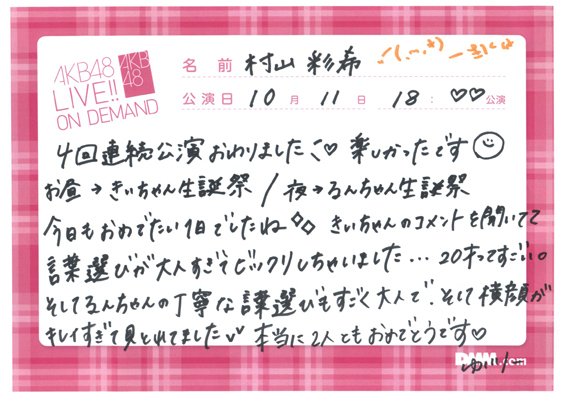 AKB48
LIVE!!
ON DEMAND
AKB
48
名前 村山 彩希
公演日 10月 11日 18:♡♡公演
4回連続公演おわりました♡ 楽しかったです
お昼→きぃちゃん生誕祭/夜→るんちゃん生誕祭
今日もおめでたい1日でしたね きぃちゃんのコメントを聞いてて
言葉選びが大人すぎてビックリしちゃいました…20才ってすごい。
そしてるんちゃんの丁寧な言葉選びもすごく大人で、そして横顔が
キレイすぎて見とれてました 本当に2人ともおめでとうです♡
DMM.com
ゆいりー